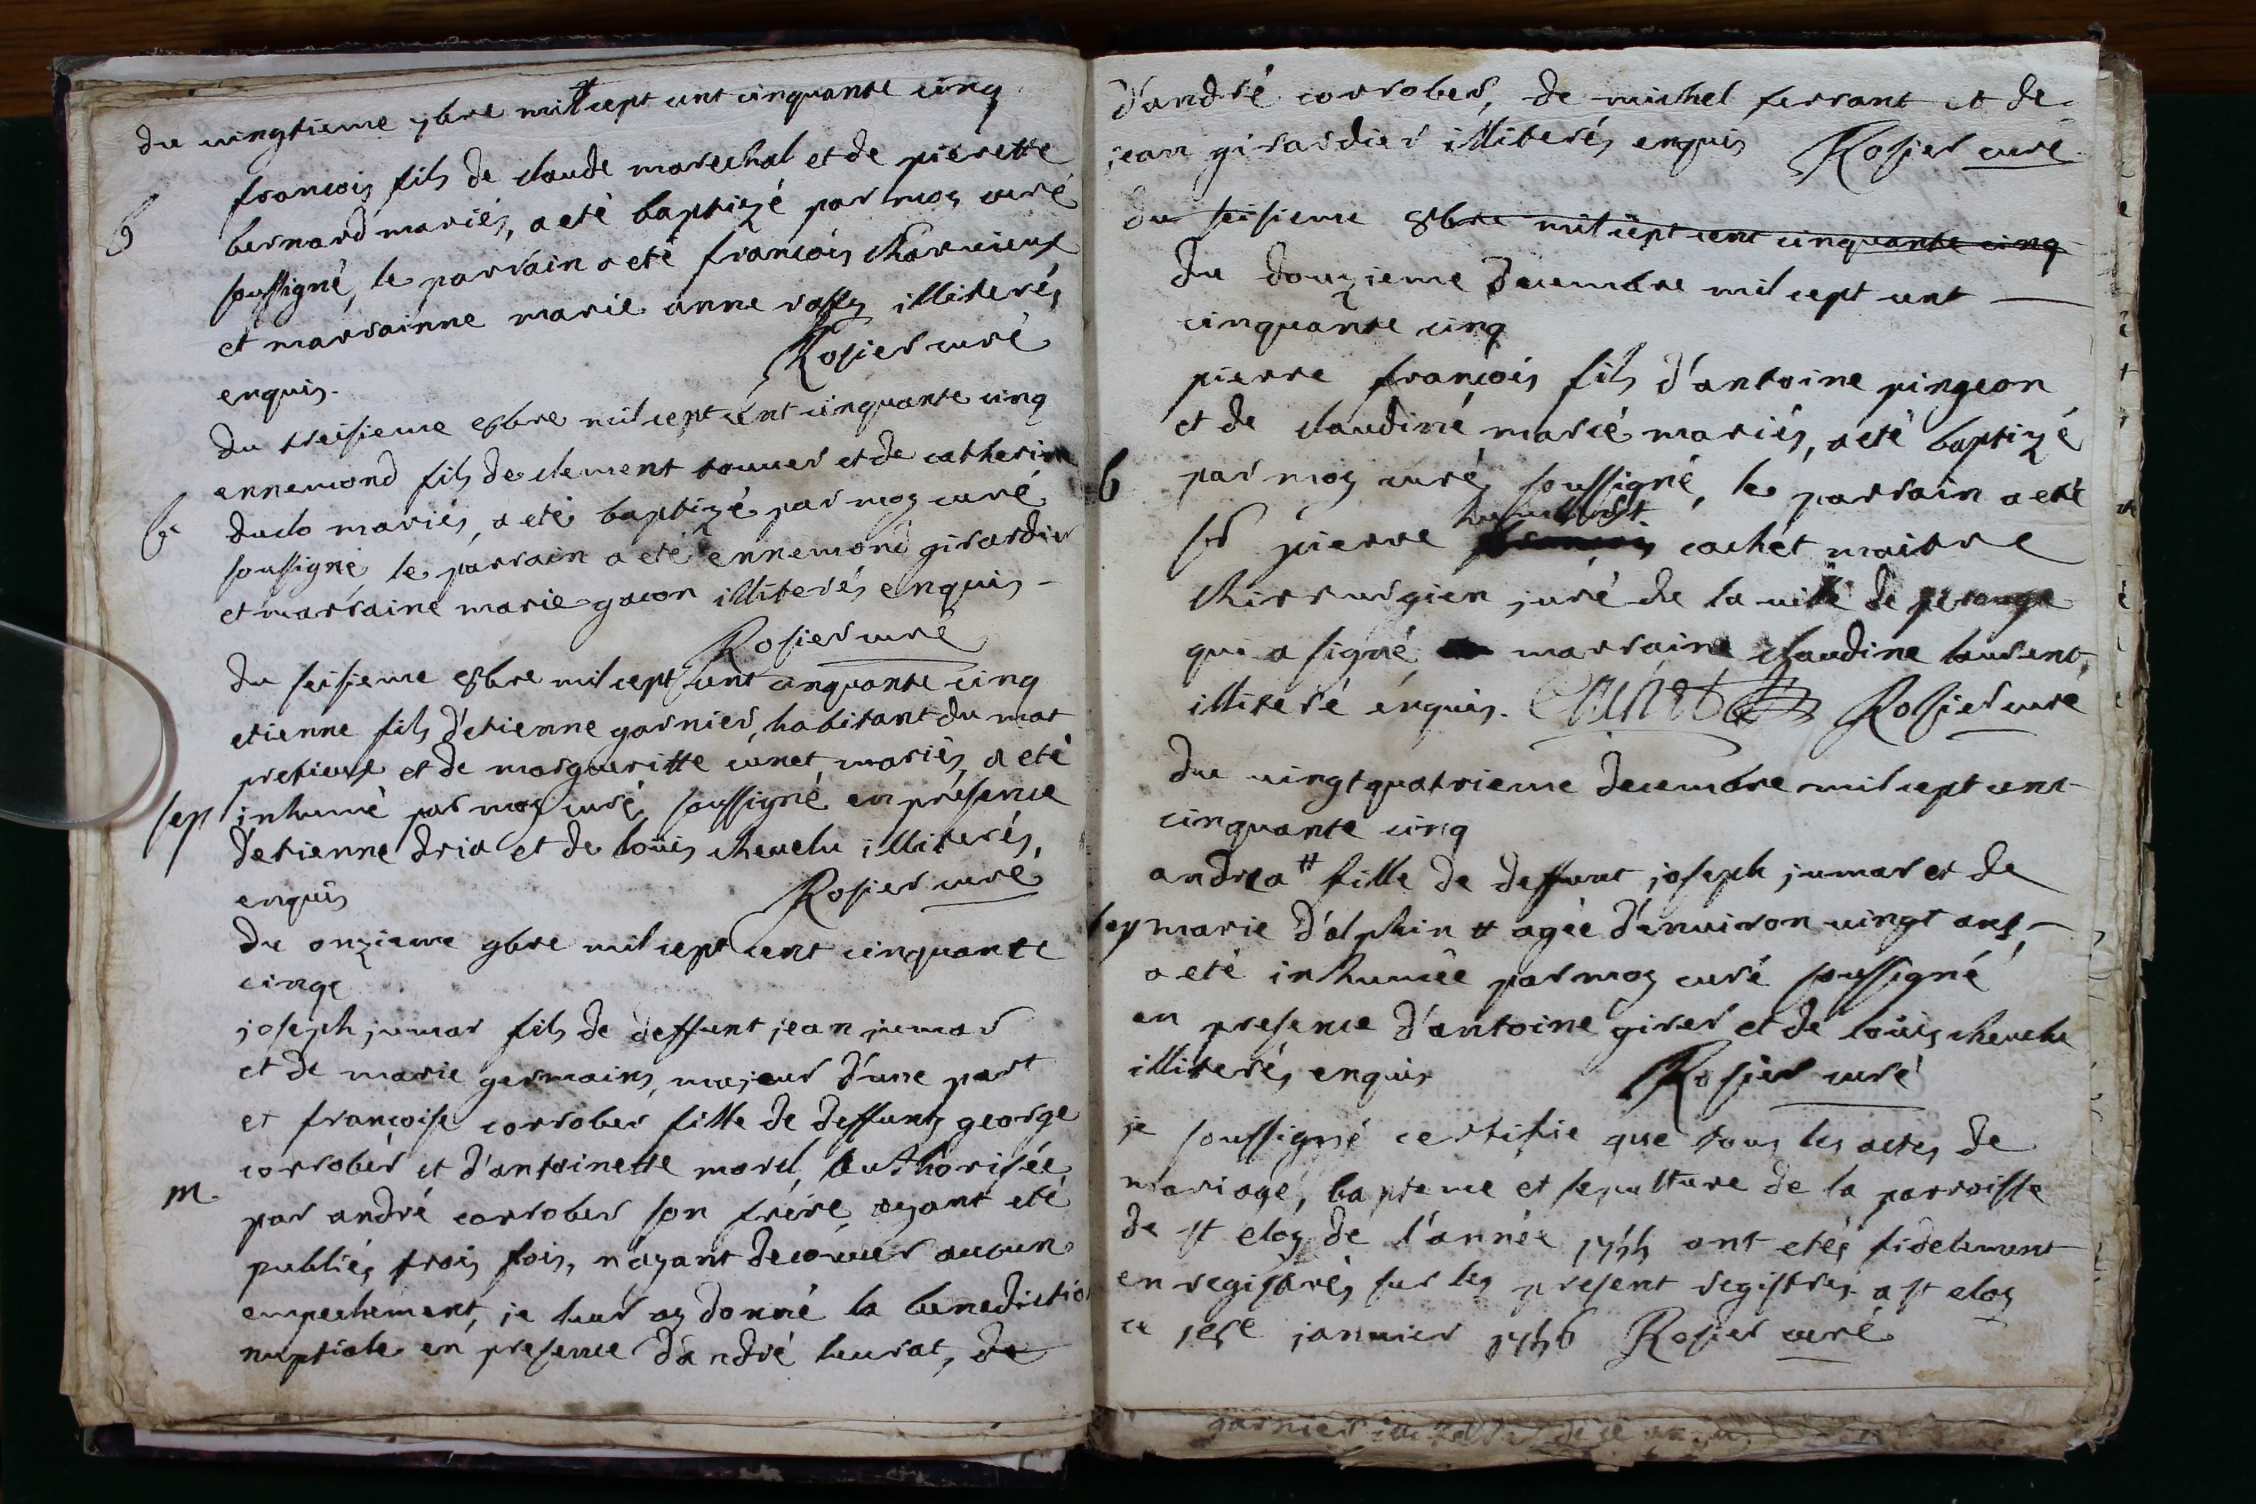 du vingtieme 7bre mil sept cent cinquante cinq
b
francois fils de claude marechal et de pierette
bernard mariés, a eté baptizé par moy curé
soussigné, le parrain a eté francois charvieux
et marrainne marie anne illiterés
enquis. Rosier curé
du treisieme 8bre mil cept cent cinquante cinq
ennemond fils de clement touver et de catherine
b.
duclo mariés, a eté baptizé par moy curé
soussigné le parrain a eté ennemond girardier
et marraine marie gacon illiterés enquis -
Rosier curé
du seisieme 8bre mil cept cent cinquante cinq
etienne fils d'etienne garnier, habitant du mas
pretieux et de margueritte cunet mariés, a eté
sep
inhumé par moy curé soussigné en presence
d'etienne dria et de loüis chevelu illiterés,
enquis Rosier curé
du onzieme 9bre mil cept cent cinquante
cinqe
joseph jumar fils de deffunt jean jumar
et de marie germains, majeur d'une part
et françoise corrober fille de deffunts george
corrober et d'antoinette morel, authorisée
m.
par andré corrober son frére, ayant eté
publiés trois fois, n'ayant decouver aucun
empechement, je leur ay donné la benediction
nuptiale en presence d'andré leurat, de
d'andré corrober, de michel ferrant et de
jean girardier illiterés enquis Rosier curé
du seisieme 8bre mil cept cent cinquante cinq
du douzieme decembre mil cept cent
cinquante cinq
pierre françois fils d'antoine pingeon
et de claudine marié mariés, a eté baptizé
b
par moy curé soussigné, le parrain a eté
sr pierre cachet maitre
chirrurgien juré de la ville de perouge
qui a signé marraine claudine laurent,
illiteré enquis. Cachet Rosier curé
du vingt quatrieme decembre mil cept cent
cinquante cinq
andrea # fille de deffunt joseph jumar et de
sep
marie d'alphin # agée d'environ vingt ans,
a eté inhumée par moy curé soussigné
en presence d'antoine girer et de loüis chevelu
illiterés enquis Rosier curé
je soussigné certifie que tous les actes de
mariage, bapteme et sepulture de la parroisse
de st eloy de l'année 1755 ont etés fidelement
enregistrés sur les present registres. a st eloy
ce 1ere janvier 1756 Rosier curé
garnier